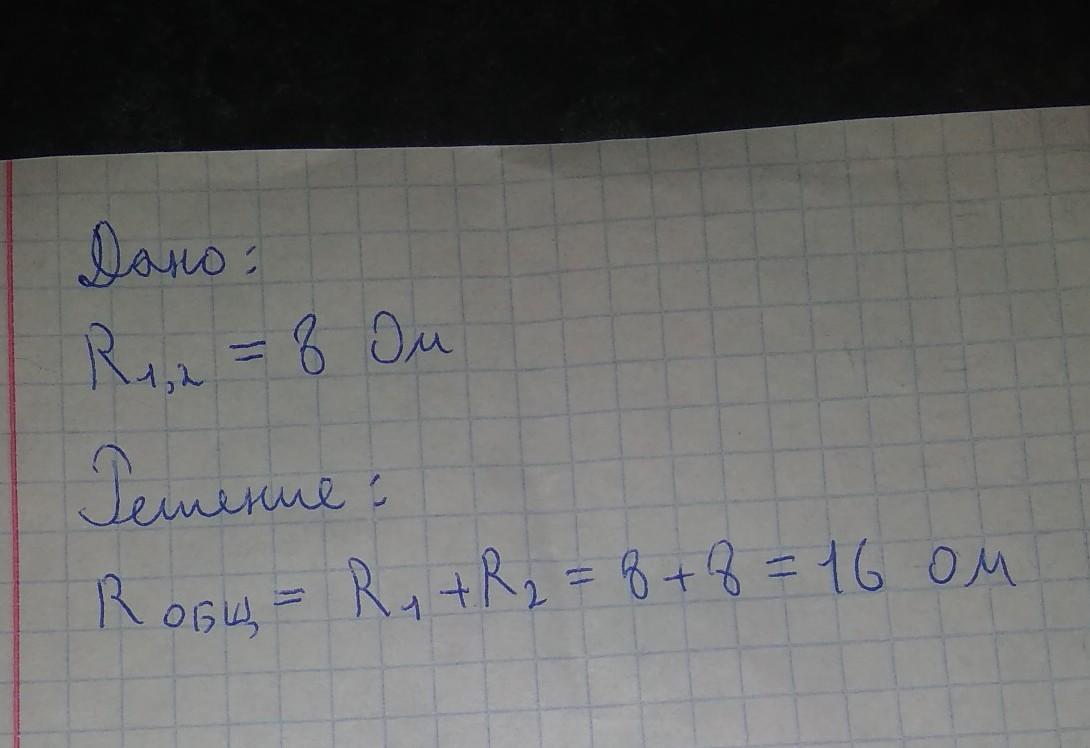 Дано:
R1,2 = 8 Ом
Решение:
R общ = R1 + R2 = 8 + 8 = 16 ОМ